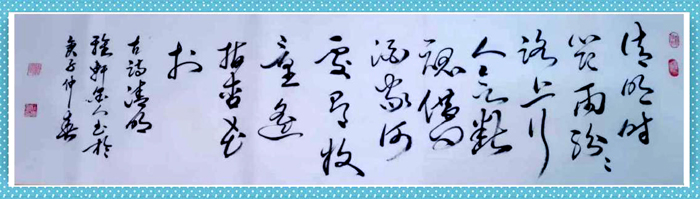 清明时
节雨纷纷
路上行
人欲断
魂借问
酒家何
处有牧
童遥
指杏花
村
古诗清明
轩人书于
庚子仲春